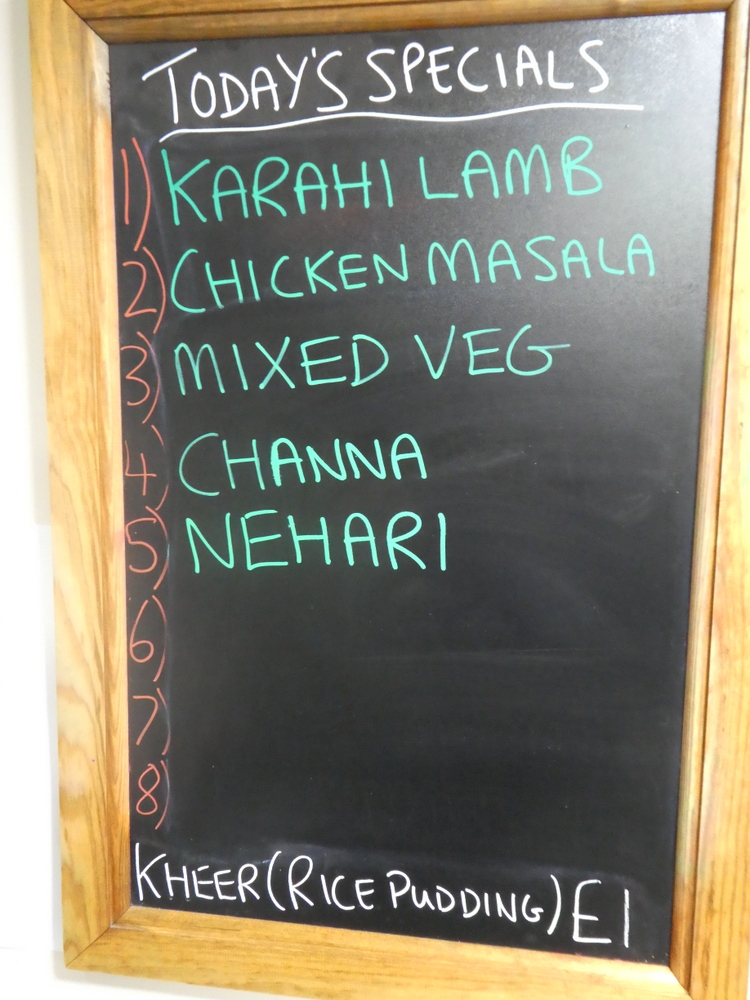 TODAY'S SPECIALS
1) KARAHI LAMB
2) CHICKEN MASALA
3) MIXED VEG
4) CHANNA
5) NEHARI
6)
7)
8)
KHEER (RICE PUDDING) £1